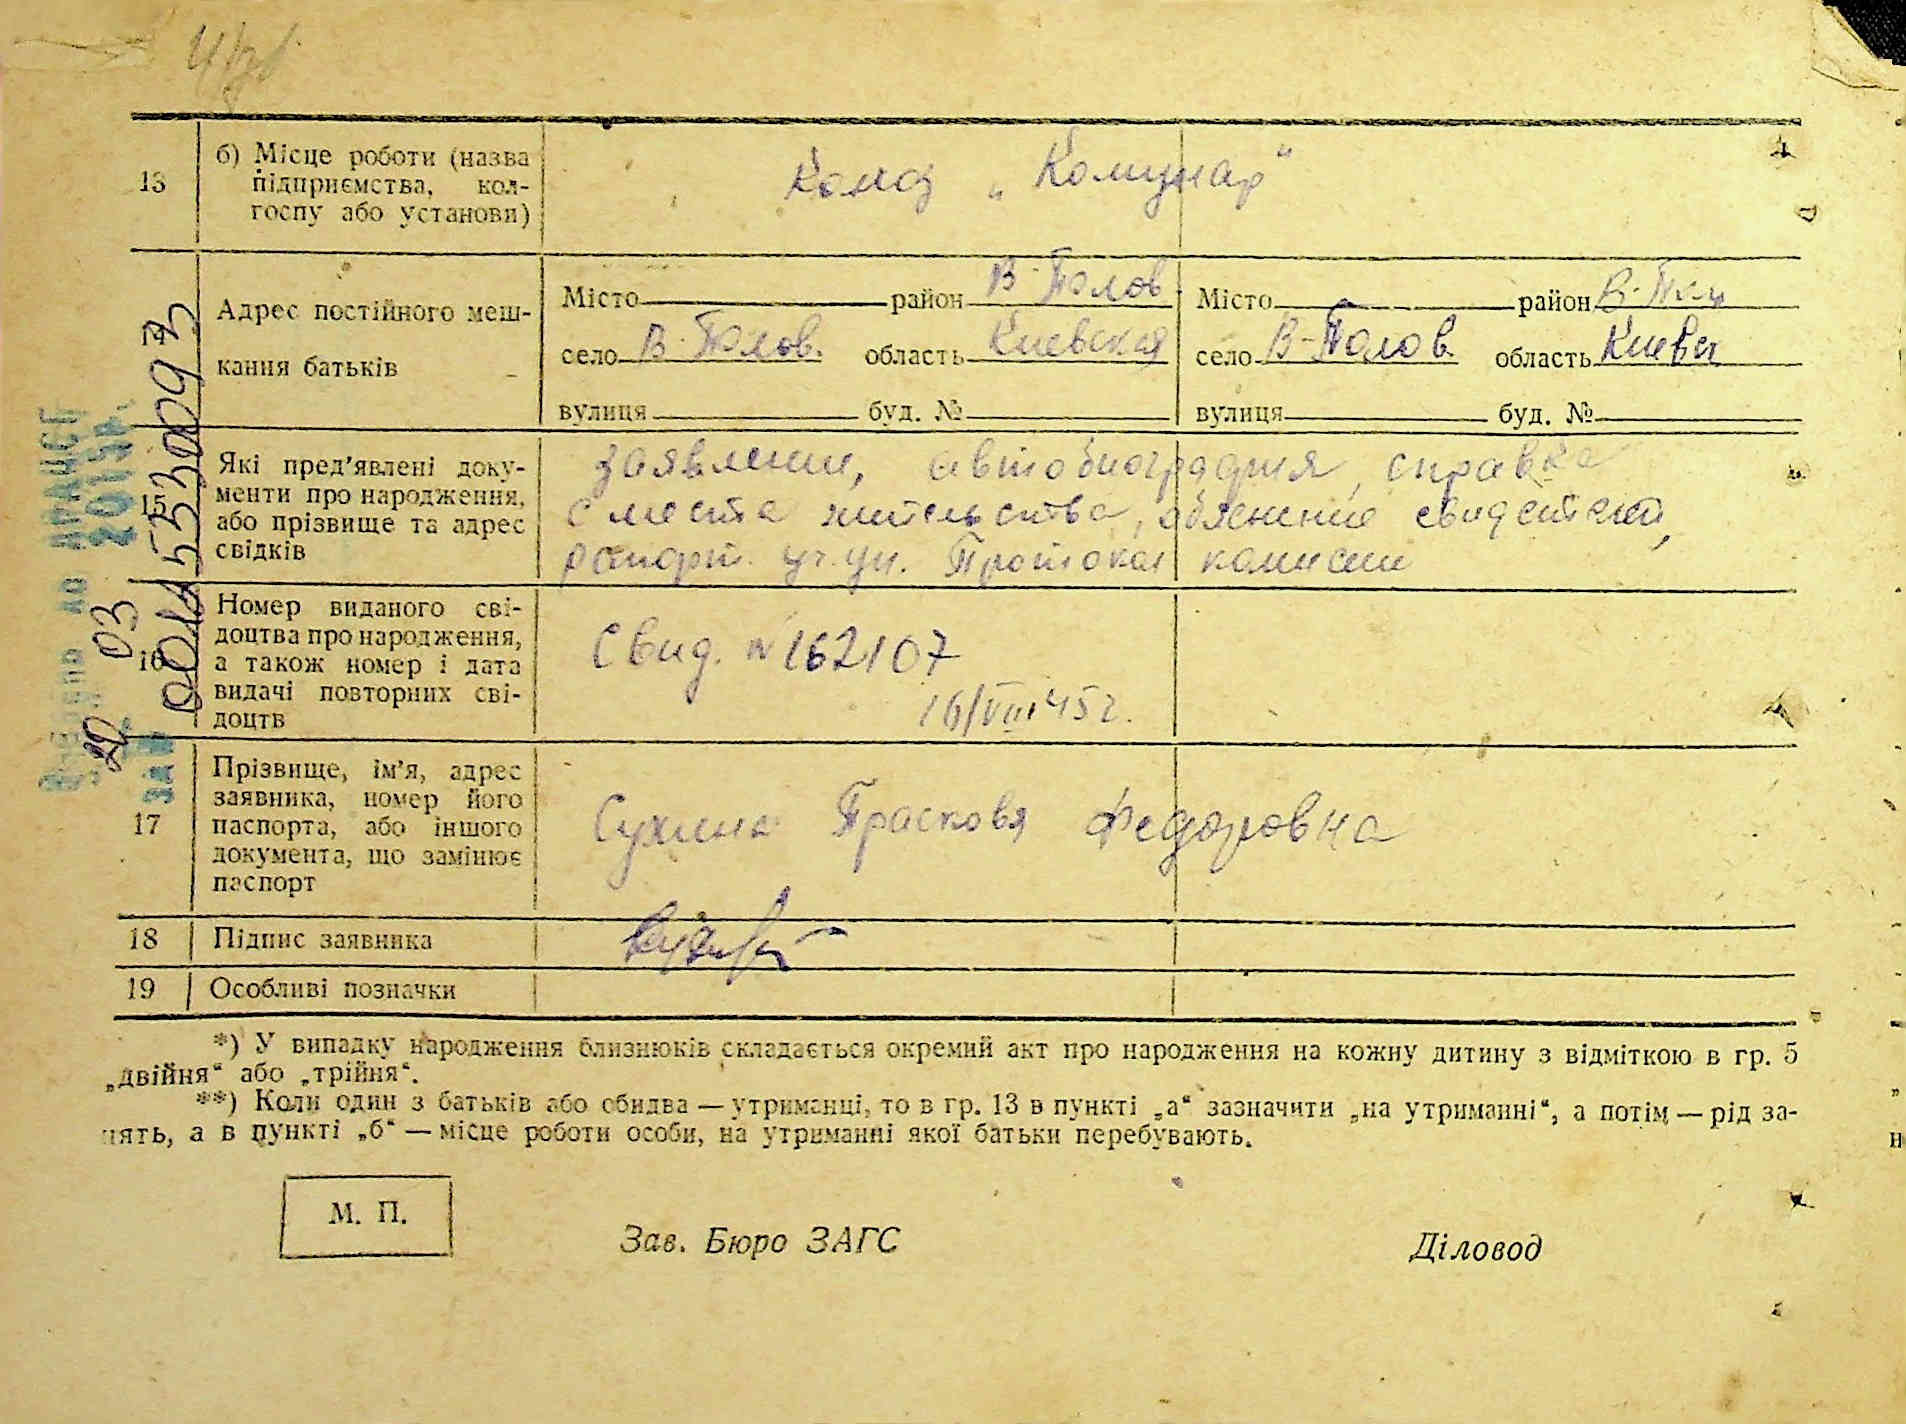 13 б) Місце роботи (назва
підприємства, кол-
госпу або установи)
„Комунар“
Адрес постійного меш-
кання батьків
Місто район В-Полов
село В-Полов. область Киевская
вулиця буд. №
Місто район
село В-Полов. область Киевск
вулиця буд. №
15 Які пред’явлені доку-
менти про народження,
або прізвище та адрес
свідків
заявление, автобиография, справка
с места жительства, обяснение свидетелей,
рапорт. уч. уп. Протокол комисии
16 Номер виданого сві-
доцтва про народження,
а також номер і дата
видачі повторних сві-
доцтв
Свид. № 162107
16/VIII 45 г.
17 Прізвище, ім’я, адрес
заявника, номер його
паспорта, або іншого
документа, що замінює
паспорт
Сухина Прасковя Федоровна
18 Підпис заявника
19 Особливі позначки
*) У випадку народження близнюків складається окремий акт про народження на кожну дитину з відміткою в гр. 5
„двійня“ або „трійня“.
**) Коли один з батьків або обидва — утриманці, то в гр. 13 в пункті „а“ зазначити „на утриманні“, а потім — рід за-
нять, а в пункті „б“ — місце роботи особи, на утриманні якої батьки перебувають.
М. П.
Зав. Бюро ЗАГС
Діловод
00145330093
20 03